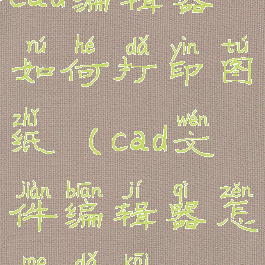 cad编辑器
rú hé dǎ yìn tú
如何打印图
zhǐ wén
纸（cad文
jiàn biān jí qì zěn
件编辑器怎
me dǎ kāi